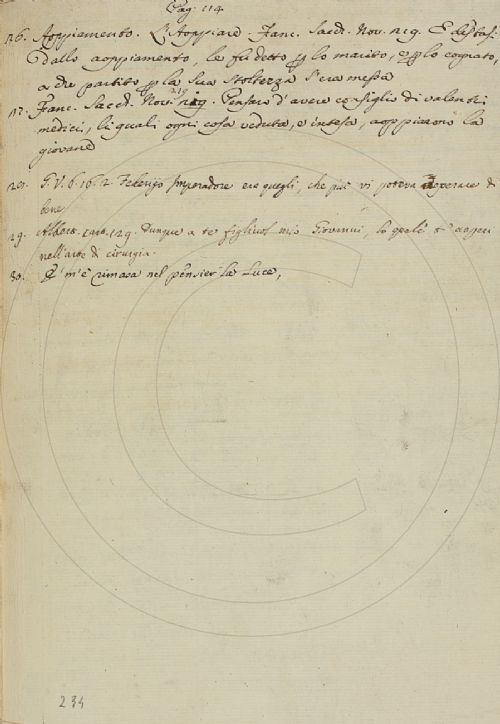 Pag. 114
26. Aoppiamento. L'Aoppiare. Franc. Sacch. Nov. 219. E destasi
dallo aoppiamento, le fu detto p lo marito, e p lo cognato,
a che partito p la sua stoltezza s'era messa
27. Franc. Sacch. Nov. 219. Pensaro d'avere consiglio di valentri
medici, li quali ogni cosa veduta, e intesa, aoppiarono la
giovane
28. G. V. 6. 16. 2. Federigo Imperadore era quegli, che più vi poteva adoperare di
bene
29. cart. 129. Dunque a te figliuol mio Giovanni, lo quale
nell'arte di cirurgia.
30. E m'è rimasa nel pensier la luce,
234